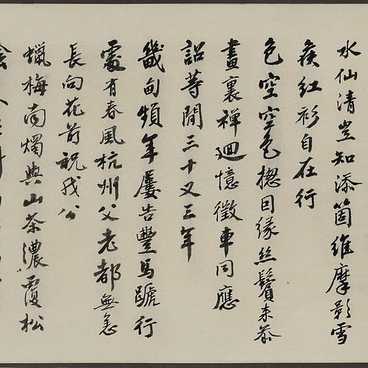 水仙清豈知添箇維摩影雪
侯紅衫自在行
色空空色摠因緣絲鬢來參
畫裏禪迴憶徵車同應
詔等閒三十又三年
畿甸頻年屢告豐馬蹏行
處有春風杭州父老都無恙
長向花前祝我公
蠟梅南燭與山茶濃覆松